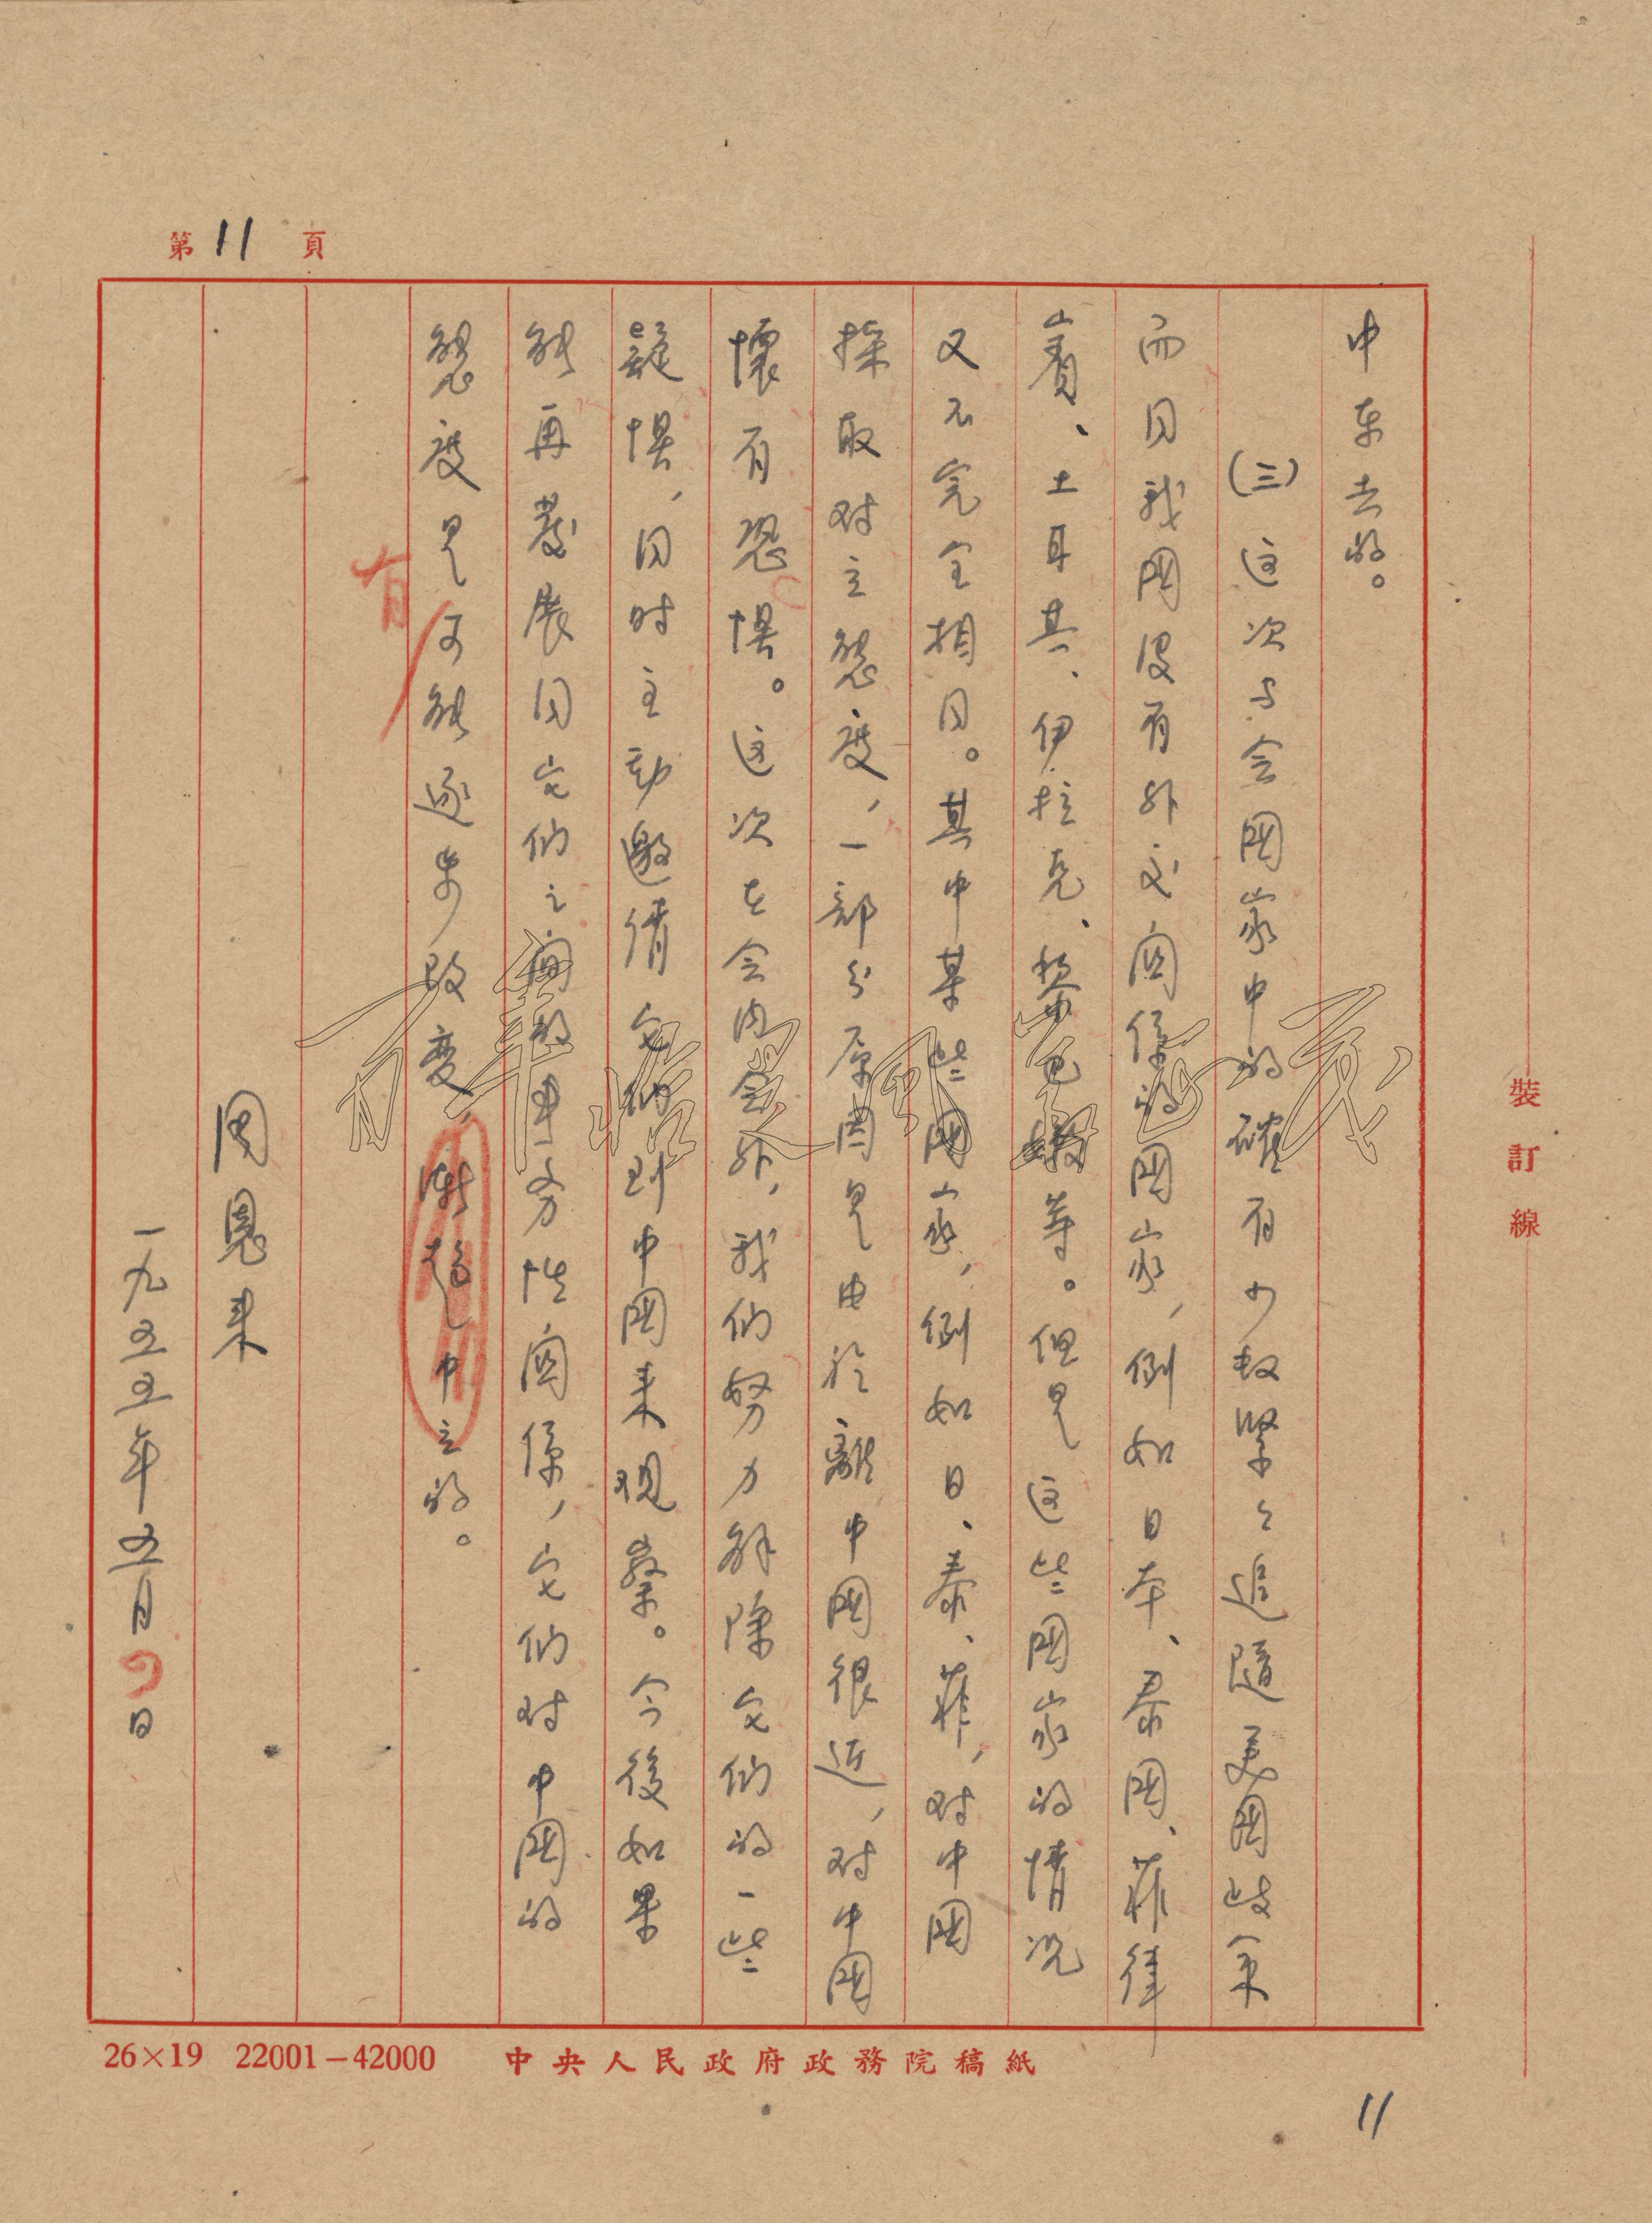 第11頁
中东去的。
(三)这次与会國家中的確有少数緊々追隨美國歧策
而同我國没有外交関係的國家,例如日本、泰國、菲律
賓、土耳其、伊拉克、黎巴嫩等。但是这些國家的情况
又不完全相同。其中某些國家,例如日、泰、菲,对中國
採取对立態度,一部分原因是由於離中國很近,对中國
懷有恐惧。这次在会内会外,我们努力解除它们的一些
疑惧,同时主动邀请它们到中國来观察。今後如果
能再發展同它们之间的事务性関係,它们对中國的
態度是可能逐步改变,漸趋中立的。
有
周恩来
一九五五年五月四日
26×19 22001—42000 中央人民政府政務院稿紙
裝訂線
11